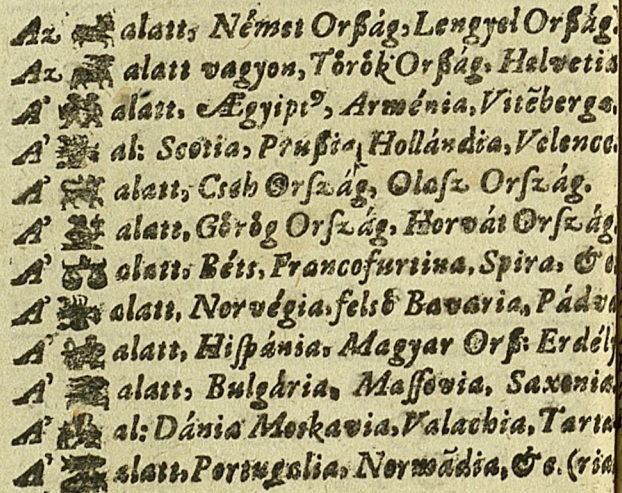 Az alatt, Német Orßág, Lengyel Orßág.
Az alatt vagyon, Tőrők Orßág. Helvetia
A' alatt. Ægyiptꝰ, Arménia, Vitēberga.
A' al: Scotia, Prußia, Hollándia, Velence.
A' alatt, Cseh Orſzág, Olaſz Orſzág.
A' alatt, Gőrőg Orſzág, Horvát Orſzág.
A' alatt, Béts, Francofurtina, Spira, &c.
A' alatt, Norvégia, felső Bavaria, Pádva
A' alatt, Hiſpánia, Magyar Orß: Erdély
A' alatt, Bulgária, Maſſovia, Saxonia.
A' al: Dánia Moskavia, Valachia, Tarta
A' alatt, Portugalia, Normādia, &c. (ria